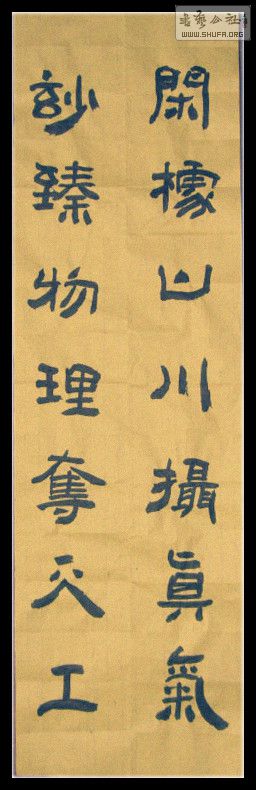 閑據山川攝眞氣
玅臻物理奪天工
書藝公社
WWW.SHUFA.ORG